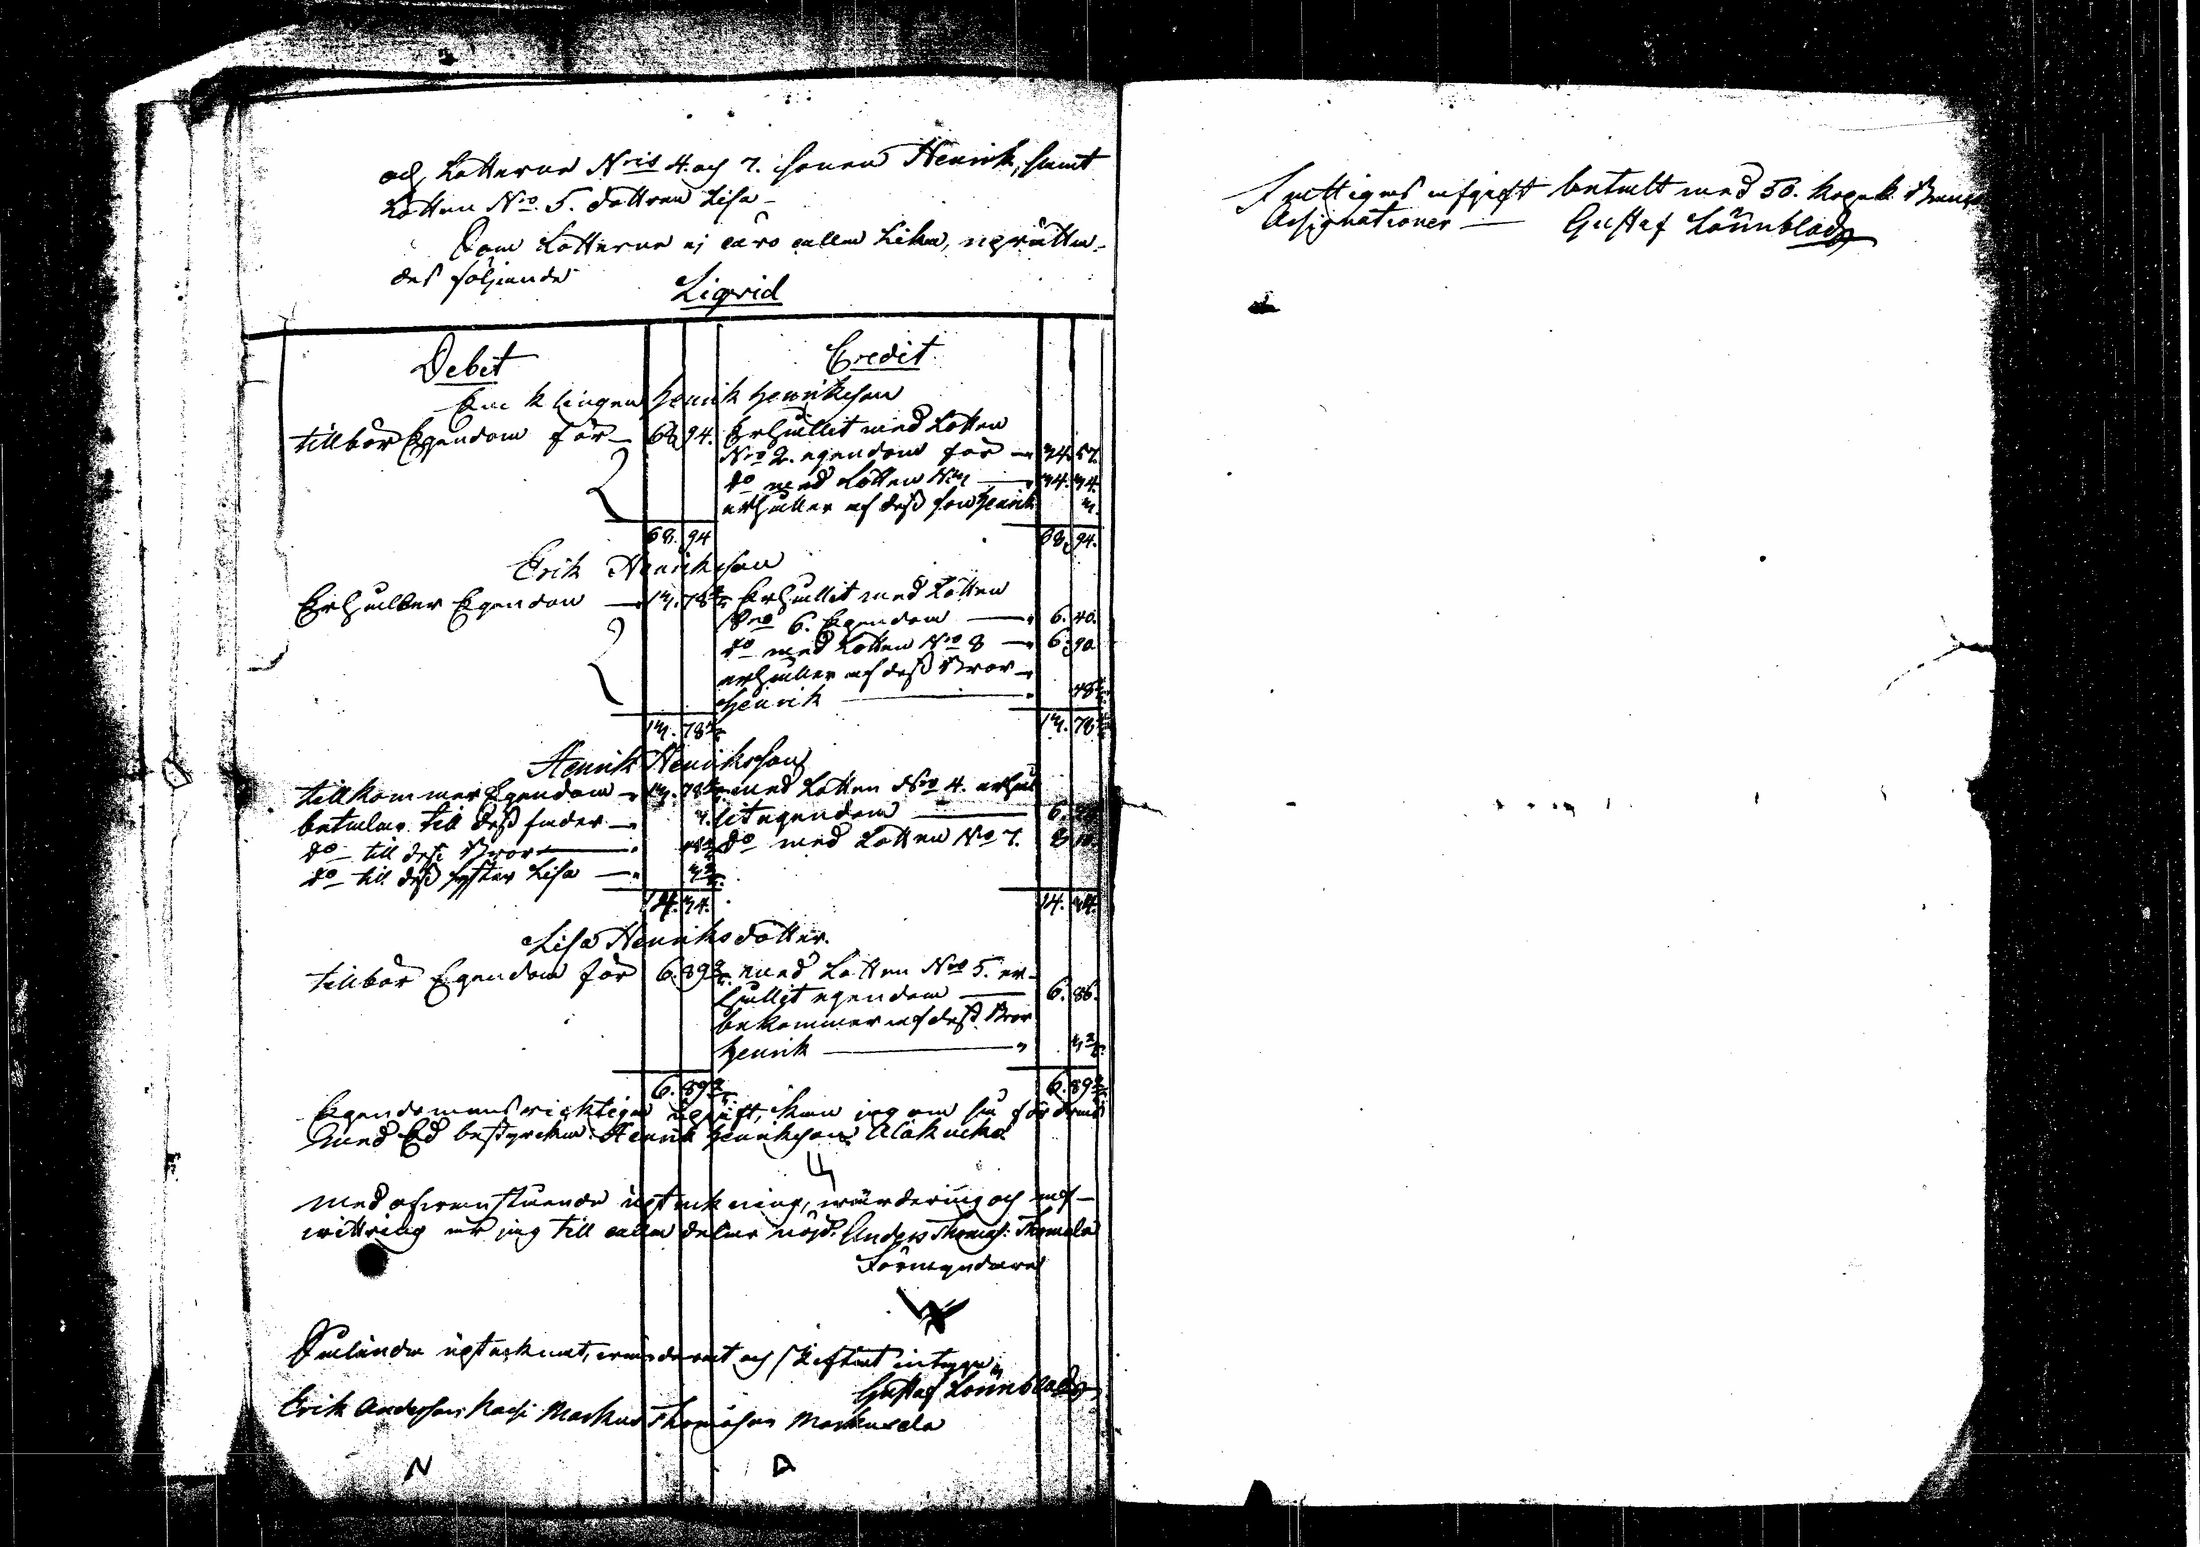 och Lotterne N:ris 4. och 7. sonen Henrik, samt
Lotten N:o 5. dottren Lisa –
Som Lotterne ej äro alla lika, uprätta-
des följande
Liqvid
Debet
Credit
Enklingen Henrik Henriksson
tillbör Egendom för — 68 94.
Erhållit med Lotten
N:o 2. egendom för — 34. 57.
d:o med Lotten N:o — 34. 34.
erhåller af dess son Henrik 3.
68. 94
68. 94.
Erik Henriksson
Erhåller Egendom — 13. 78
Erhållit med Lotten
N:o 6. Egendom — 6. 40.
d:o med Lotten N:o 8 — 6. 90
erhåller af dess Bror
Henrik — 48
13. 78
13. 78
Henrik Henriksson
tillkommer Egendom — 13. 78
med Lotten N:o 4. erhål-
betalar till dess fader — 3.
lit egendom — 6.
d:o till dess Bror — 48
d:o med Lotten N:o 7. 8
d:o till dess syster Lisa — 3
14. 34.
14. 34.
Lisa Henriksdotter.
tillbör Egendom för 6. 89
med Lotten N:o 5. er-
hållit egendom — 6. 86.
bekommer af dess Bror
Henrik — 3
6. 89
6. 89
Egendomens riktiga upgift, kan jag om så fordras
med Ed bestyrcka. Henrik Henriksson
Med ofvanstående uptekning, wärdering och
wittring är jag till alla delar nögd. Anders Thomass: Thomola
Förmyndare
Sålunda uptecknat, wärderat och skiftat intyga
Gustaf Lönnblad
Erik Andersson Markus Thomasson Markusela
N
D
Fattigas afgift betalt med 50. kopek Banco
Assignationer — Gustaf Lönnblad